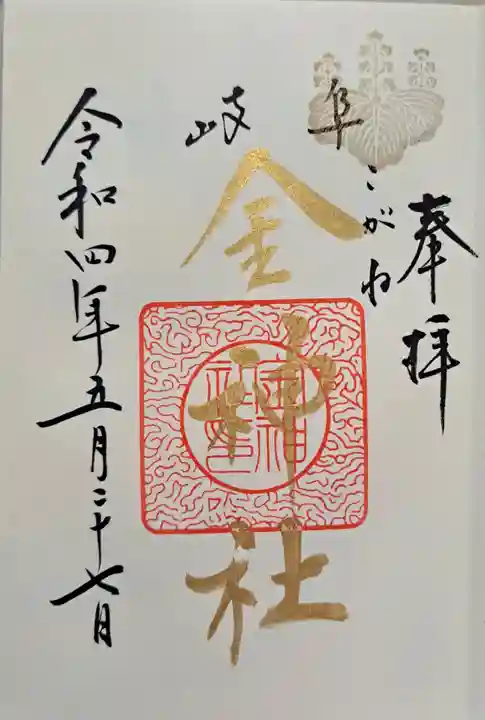 奉拝
岐阜
こがね
金神社
令和四年五月二十七日